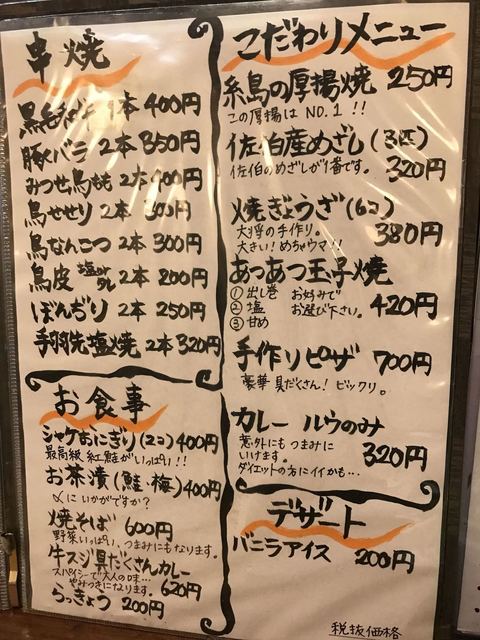 串焼
黒毛和牛 1本 400円
豚バラ 2本 350円
みつせ鳥もも 2本 400円
鳥せせり 2本 300円
鳥なんこつ 2本 300円
鳥皮 塩orタレ 2本 200円
ぼんぢり 2本 250円
手羽先塩焼 2本 320円
お食事
シャケおにぎり(2コ) 400円
最高級 紅鮭がいっぱい!!
お茶漬(鮭・梅) 400円
〆にいかがですか?
焼そば 600円
野菜いっぱい、つまみにもなります。
牛スジ具だくさんカレー
スパイシーで大人の味…
やみつきになります。 620円
らっきょう 200円
こだわりメニュー
糸島の厚揚焼 250円
この厚揚は NO.1 !!
佐伯産めざし(3匹)
佐伯のめざしが1番です。 320円
焼ぎょうざ(6コ)
大将の手作り。
大きい!めちゃウマ!! 380円
あつあつ玉子焼
① 出し巻 お好みで
② 塩 お選び下さい。 420円
③ 甘め
手作りピザ 700円
豪華具だくさん! ビックリ。
カレー ルウのみ
意外にも つまみに
いけます。 320円
ダイエットの方にイイかも…
デザート
バニラアイス 200円
税抜価格